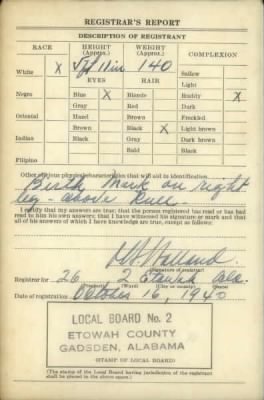 REGISTRAR'S REPORT
DESCRIPTION OF REGISTRANT
RACE HEIGHT (Approx.) WEIGHT (Approx.) COMPLEXION
5 ft 11 in 140
White X Sallow
EYES HAIR Light
Negro Blue X Blonde Ruddy X
Gray Red Dark
Oriental Hazel Brown Freckled
Brown Black X Light brown
Indian Black Gray Dark brown
Bald Black
Filipino
Other obvious physical characteristics that will aid in identification
Birth mark on right
leg - above knee -
I certify that my answers are true; that the person registered has read or has had
read to him his own answers; that I have witnessed his signature or mark and that
all of his answers of which I have knowledge are true, except as follows:
Holland
(Signature of registrar)
Registrar for 26 2 Etowah Ala.
(Precinct) (Ward) (City or county) (State)
Date of registration October 16, 1940
LOCAL BOARD No. 2
ETOWAH COUNTY
GADSDEN, ALABAMA
(STAMP OF LOCAL BOARD)
(The stamp of the Local Board having jurisdiction of the registrant
shall be placed in the above space.)